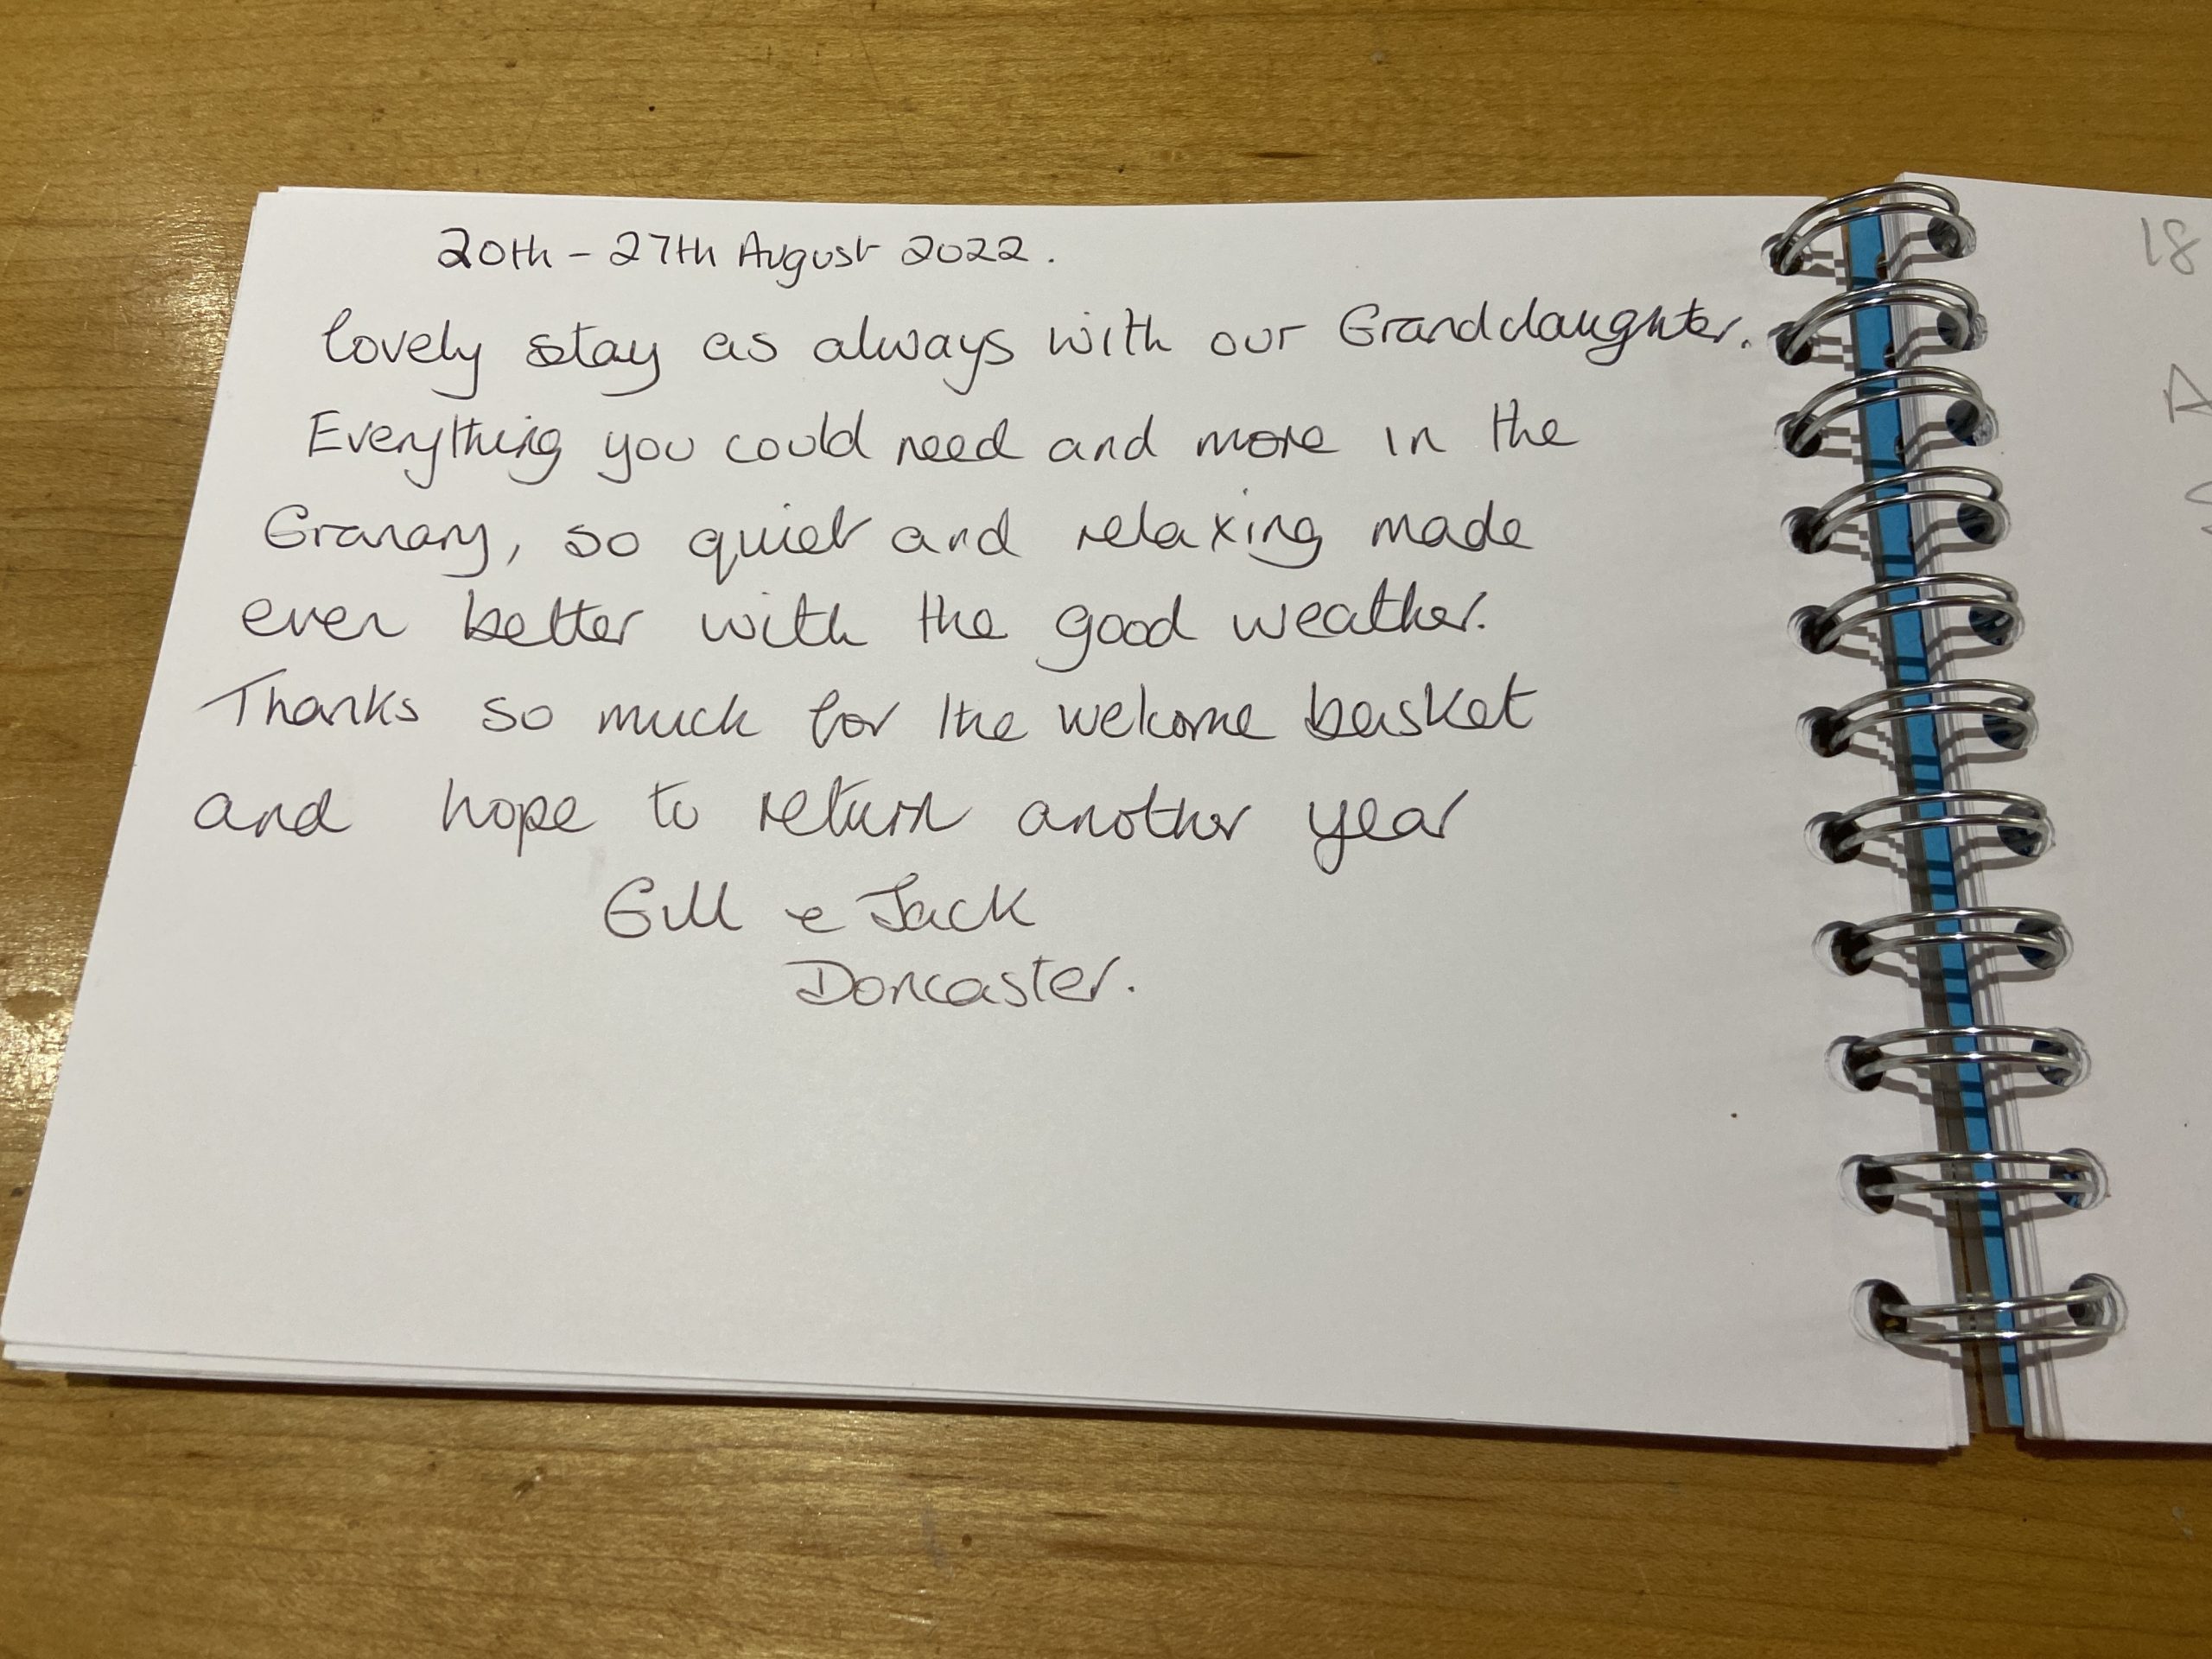 20th - 27th August 2022.
lovely stay as always with our Granddaughter.
Everything you could need and more in the
Granary, so quiet and relaxing made
even better with the good weather.
Thanks so much for the welcome basket
and hope to return another year
Gill & Jack
Doncaster.
18
A